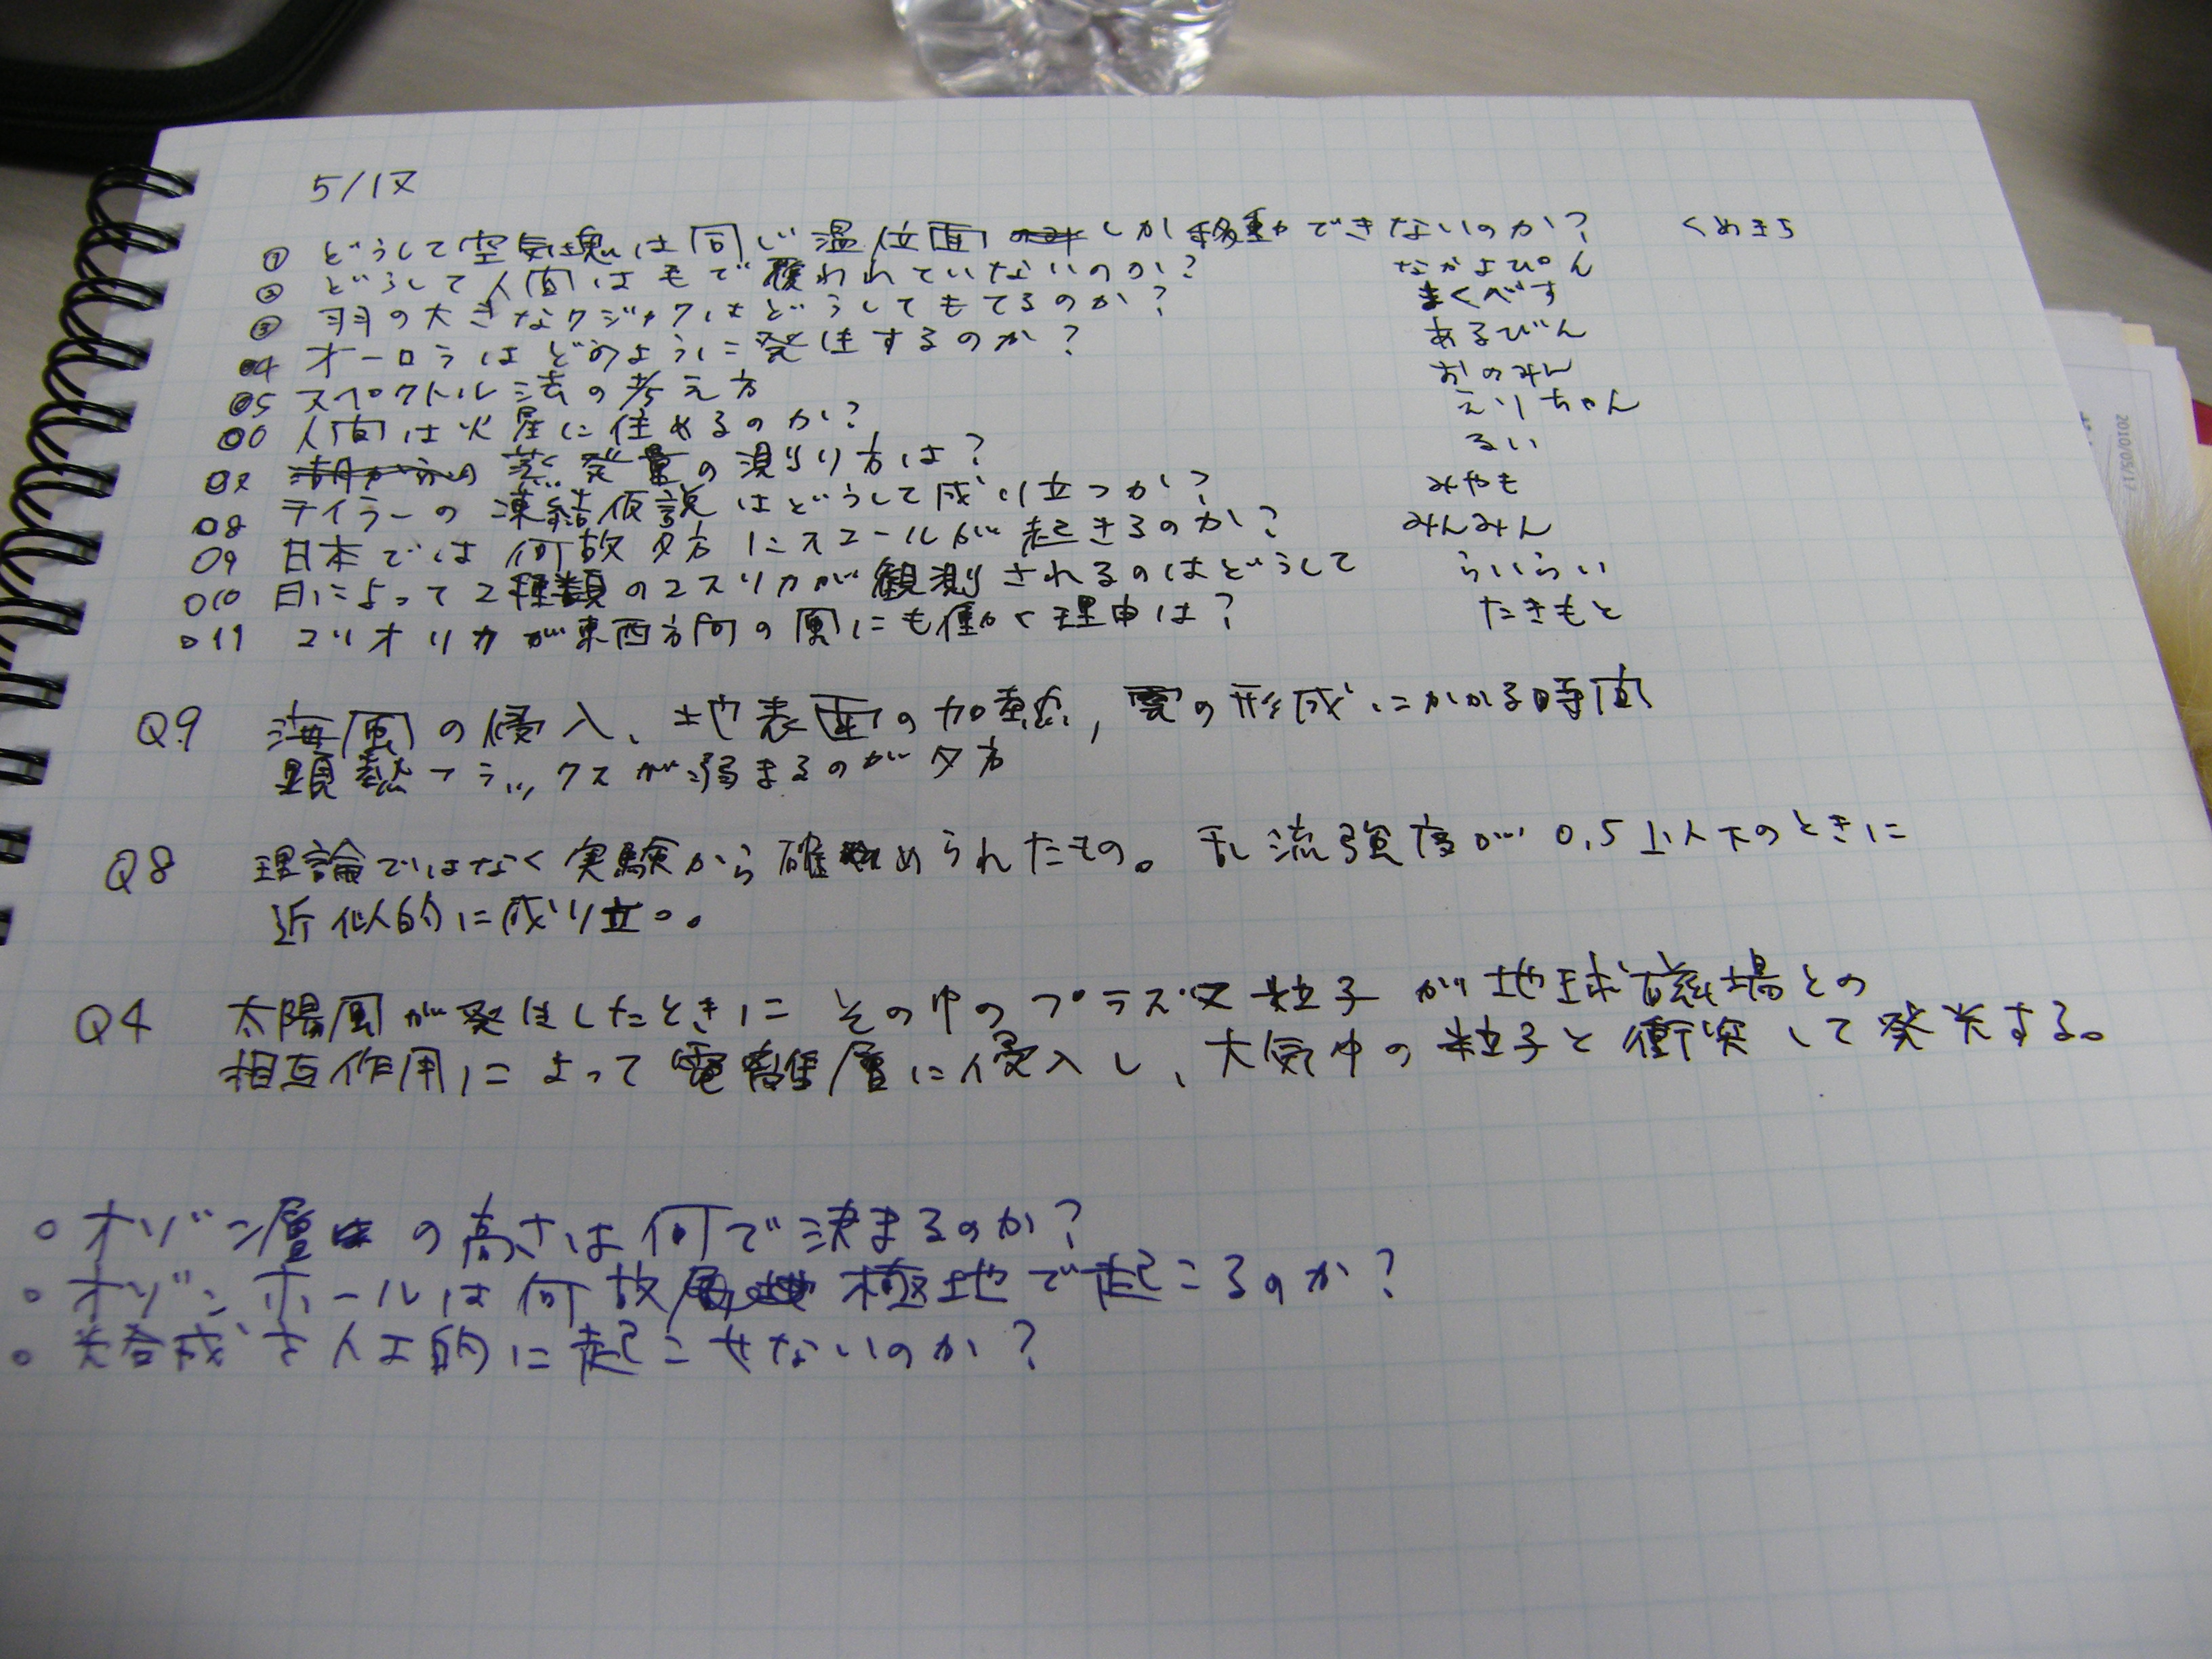 5/17
① どうして空気塊は同じ温位面しか移動できないのか? くめきち
② どうして人間は毛で覆われていないのか? なかよぴん
③ 羽の大きなクジャクはどうしてもてるのか? まくべす
04 オーロラはどのように発生するのか? あるびん
05 スペクトル法の考え方 おのみん
06 人間は火星に住めるのか? えりちゃん
07 蒸発量の測り方は? るい
08 テイラーの凍結仮説はどうして成り立つか? みやも
09 日本では何故夕方にスコールが起きるのか? みんみん
010 日によって2種類のコスリカが観測されるのはどうして らいらい
011 コリオリカが東西方向の風にも働く理由は? たきもと
Q9 海風の侵入、地表面の加熱, 雲の形成にかかる時間
顕熱フラックスが弱まるのが夕方
Q8 理論ではなく実験から確かめられたもの。乱流強度が0.5以下のときに
近似的に成り立つ。
Q4 太陽風が発生したときにその中のプラズマ粒子が地球磁場との
相互作用によって電離層に侵入し、大気中の粒子と衝突して発光する。
○ オゾン層の高さは何で決まるのか?
○ オゾンホールは何故極地で起こるのか?
○ 光合成を人工的に起こせないのか?
2010/05/17